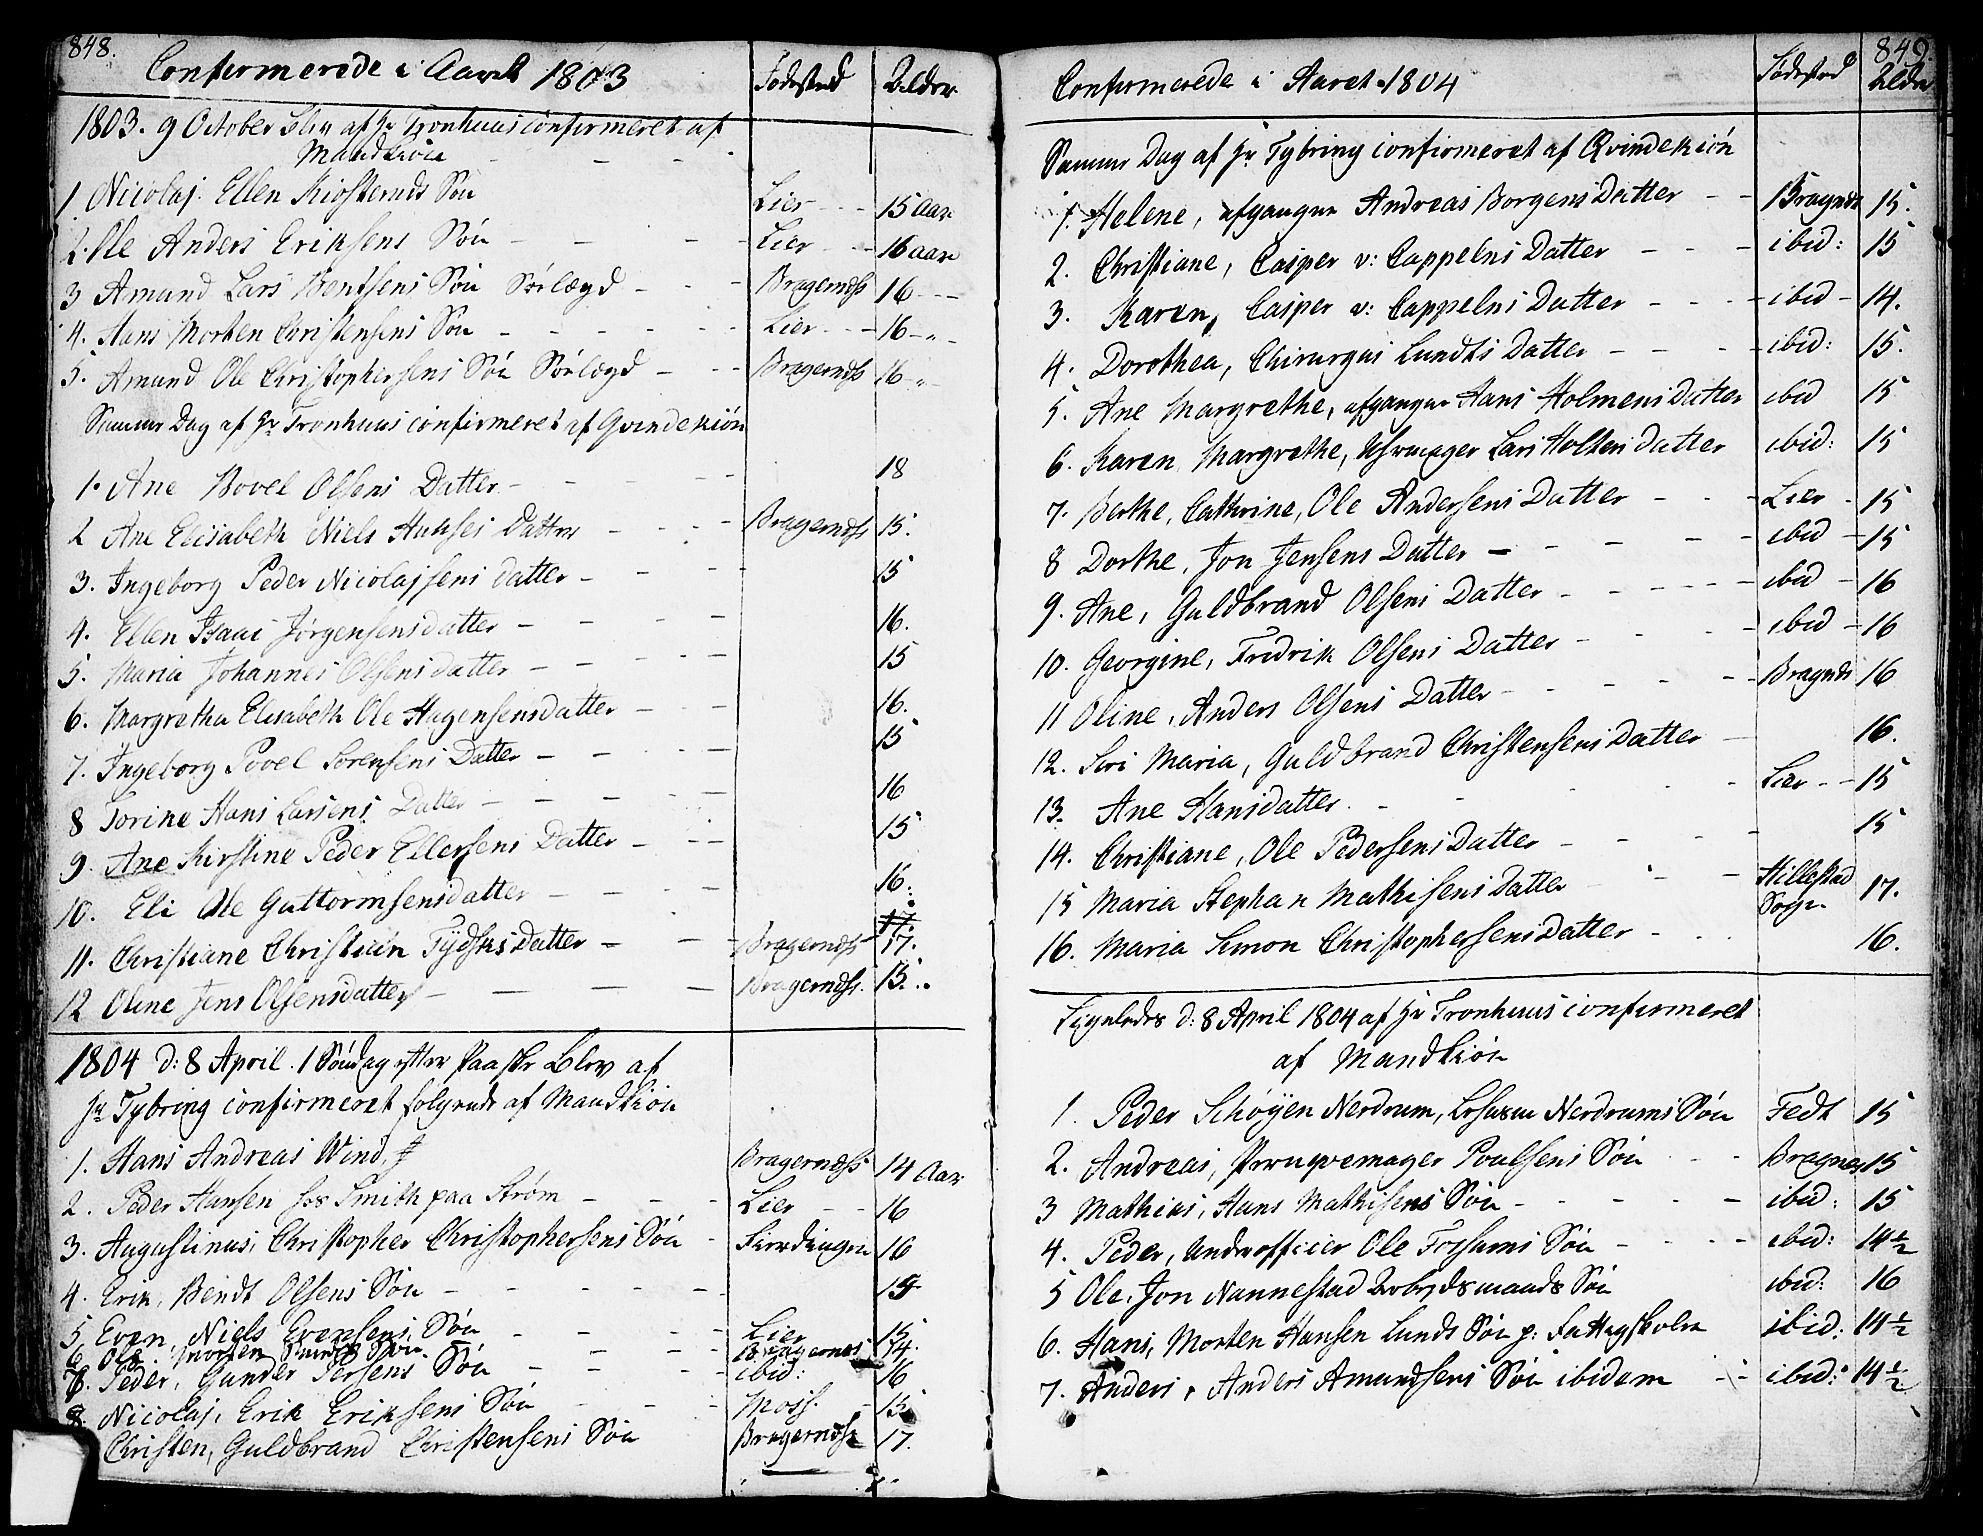 848.
Confirmerede i Aaret 1803 Fødested Alder
1803. 9 October blev af Hr Tronhuus confirmeret af
Mandkiön
1 Nicolaj. Ellen Kiosteruds Sön Lier 15 Aar
2. Ole Anders Eriksens Sön Lier 16 aar
3 Amund Lars Bentsens Sön Sörlægd Bragernæss 16
4. Hans Morten Christensens Sön Lier 16
5. Amund Ole Christophersens Sön Sörlægd Bragernæss 16
Samme Dag af Hr Tronhuus confirmeret af Qvindekiön
1. Ane Bovel Olsens Datter 18
2 Ane Elisabeth Niels Datter Bragernæss 15.
3. Ingeborg Peder Nicolajsens datter 15
4. Ellen Isaac Jørgensens datter 16.
5. Maria Johannes Olsens datter 15
6. Margretha Elisabeth Ole Hagensens datter 16.
7. Ingeborg Povel Sorensens Datter 15
8 Torine Hans Larsens Datter 16
9. Ane Kirstine Peder Ellersens Datter 15
10. Eli Ole Guttormsens datter 16.
11. Christiane Christian Tydskes datter Bragernæss 17.
12 Oline Jens Olsens datter Bragernæss. 15.
1804 d: 8 April. 1 Söndag efter Paaske blev af
Hr Tybring confirmeret følgende af Mandkiön
1. Hans Andreas Wind. Bragernæss 14 Aar
2. Peder Hansen hos Smith paa Strøm Lier 16
3. Augustinus, Christopher Christophersens Sön 16
4. Erik, Bendt Olsens Sön
5 Even, Niels Evensens Sön Lier 15
6 Ole. Morten Sön. Bragernæs 14.
7. Peder, Gunder Persens Sön ibid: 16
8. Nicolaj, Erik Eriksens Sön Moss. 15
Christen, Guldbrand Christensens Sön Bragernæss 17.
849.
Confirmerede i Aaret 1804 Fødested Alder
Samme Dag af Hr Tybring confirmeret af Qvindekiön
1. Helene, afgangne Andreas Borgens Datter Bragnæs 15.
2. Christiane, Casper v: Cappelns Datter ibid: 15
3. Karen, Casper v: Cappelns Datter ibid 14.
4. Dorothea, Chirurgus Lundts Datter ibid: 15.
5. Ane Margrethe, afgangne Hans Holmens Datter ibid 15
6. Karen Margrethe, Uhrmager Lars Holtens datter ibid: 15
7. Berthe, Cathrine, Ole Andersens Datter Lier 15
8 Dorthe, Jon Jensens Datter ibid 15
9. Ane, Guldbrand Olsens Datter ibid 16
10. Georgine, Fredrik Olsens Datter ibid 16
11 Oline, Anders Olsens Datter Bragnæs 16
12. Siri Maria, Guldbrand Christensens Datter 16.
13. Ane Hansdatter. Lier 15
14. Christiane, Ole Pedersens Datter 15
15 Maria Stephan Mathisens Datter Hillestad Sogn 17.
16. Maria Simon Christophersens Datter 16.
Ligeledes d: 8 April 1804 af Hr Tronhuus confirmeret
af Mandkiön
1. Peder Schøyen Nerdrum, Nerdrums Sön Fedt 15
2. Andreas, Peruqvemager Poulsens Sön Bragnes 15
3 Mathias, Hans Mathisens Sön ibid: 15
4. Peder, Underofficier Ole Fossums Sön ibid: 14½
5 Ole, Jon Nannestad Arbejdsmands Sön ibid: 16
6. Hans, Morten Hansen Lunds Sön p: Fattigskolen ibid: 14½
7. Anders, Anders Amundsens Sön ibidem ibid: 14½